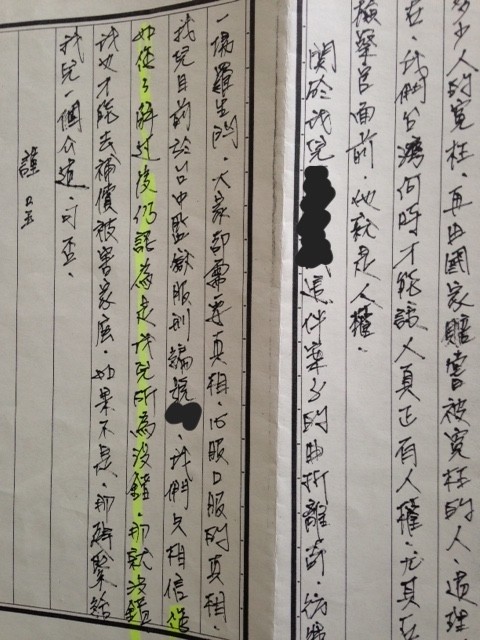 多少人的冤枉．再由國家賠嘗被冤枉的人．道理
在．我們台灣何時才能讓人真正有人權．尤其在
檢察官面前．他就是人權．
關於我兒這件案子的曲折離奇．彷彿
一場羅生門．大家都需要真相．心服口服的真相．
我兒目前於台中監獄服刑編號．我們只相信您
如您了解過後仍認為是我兒所為沒錯．那就沒錯
我也才能去補償被害家庭．如果不是．那
我兒一個公道．可否．
謹呈